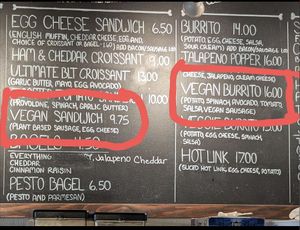 EGG CHEESE SANDWICH 6.50
(ENGLISH MUFFIN, CHEDDAR CHEESE, EGG AND,
CHOICE OF CROISSANT OR BAGEL 1.60) ADD BACON/SAUSAGE 1.00
HAM & CHEDDAR CROISSANT 9.00
ULTIMATE BLT CROISSANT 13.00
(GARLIC BUTTER, MAYO, EGG, AVOCADO)
SANDWICH
(PROVOLONE, SPINACH, GARLIC BUTTER)
VEGAN SANDWICH 9.75
(PLANT BASED SAUSAGE, EGG, CHEESE)
BAGELS
EVERYTHING
CHEDDAR
CINNAMON RAISIN
Jalapeno Cheddar
PESTO BAGEL 6.50
(PESTO AND PARMESAN)
BURRITO 14.00
(POTATO, EGG, CHEESE, SALSA,
SOUR CREAM) ADD BACON/SAUSAGE
JALAPENO POPPER 16.00
(CHEESE, JALAPENO, CREAM CHEESE)
VEGAN BURRITO 16.00
(POTATO, SPINACH, AVOCADO, TOMATO,
SALSA, VEGAN SAUSAGE)
VEGGIE BURRITO
HOT LINK 17.00
(SLICED HOT LINK, EGG, CHEESE, POTATO)